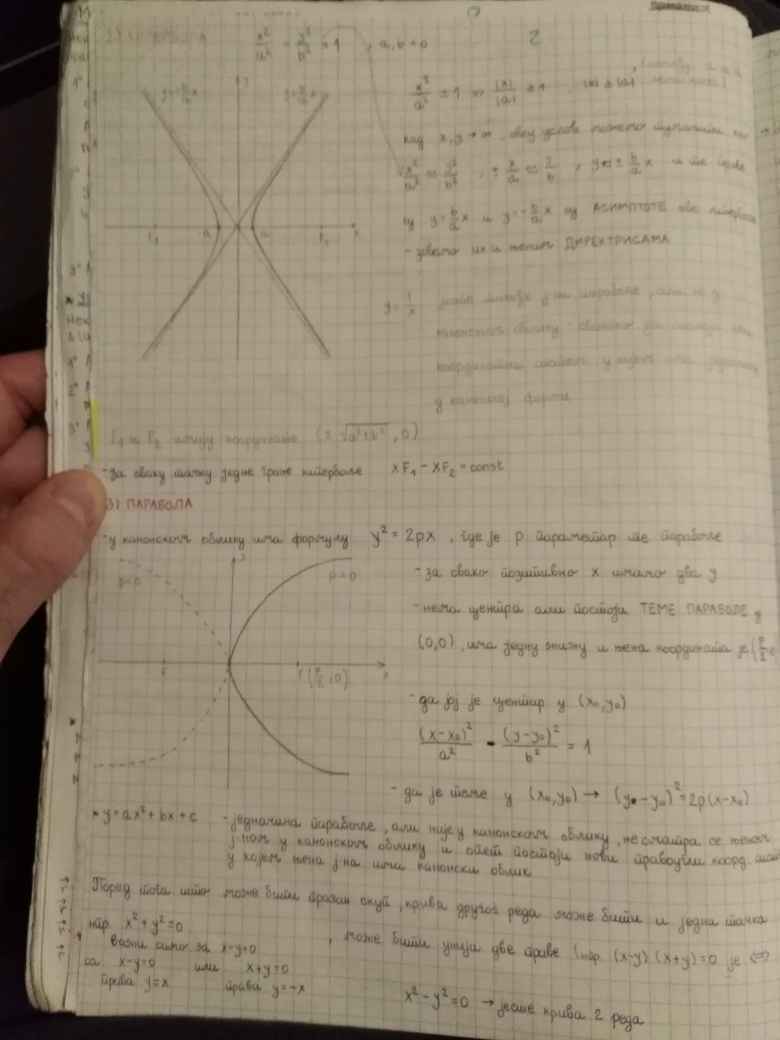 2) ХИПЕРБОЛА x²/a² - y²/b² = 1 , a,b ≠ 0
2
y=-b/a x
y=b/a x
y
x
F₂
a
a
F₁
|x|/|a| ≥ 1
кад x,y→∞ овај услов можемо
x²/a² ≈ y²/b² , ± x/a ≈ y/b , y ≈ ± b/a x и те праве
су y=b/a x и y=-b/a x су АСИМПТОТЕ ове хиперболе
- зовемо их и њеним ДИРЕКТРИСАМА
y=1/x јесте такође ј-на параболе, али не у
канонском облику
координатни систем у којем има једначину
у канонској форми
F₁ и F₂ имају координате (± √a²+b² , 0)
-за сваку тачку једне гране хиперболе XF₁ - XF₂ = const
3) ПАРАБОЛА
-у канонском облику има формулу y² = 2px , где је p параметар те параболе
p<0
y
p>0
x
F
F(p/2, 0)
-за свако позитивно x имамо два y
-нема центра али постоји ТЕМЕ ПАРАБОЛЕ у
(0,0), има једну жижу и њена координата је (p/2, 0)
-да јој је центар у (x₀,y₀)
(x-x₀)²/a² - (y-y₀)²/b² = 1
- да је теме у (x₀,y₀) → (y-y₀)² = 2p(x-x₀)
* y=ax²+bx+c -једначина параболе, али није у канонском облику, не сматра се њеном
ј-ном у канонском облику и опет постоји нови правоугли коорд. сист
у којем њена ј-на има канонски облик
Поред тога што може бити празан скуп, крива другог реда може бити и једна тачка
нпр. x²+y²=0
важи само за x=y=0 , може бити унија две праве (нпр. (x-y)(x+y)=0 је ⇔
са x-y=0 или x+y=0
права y=x права y=-x
x²-y²=0 → јесте крива 2 реда